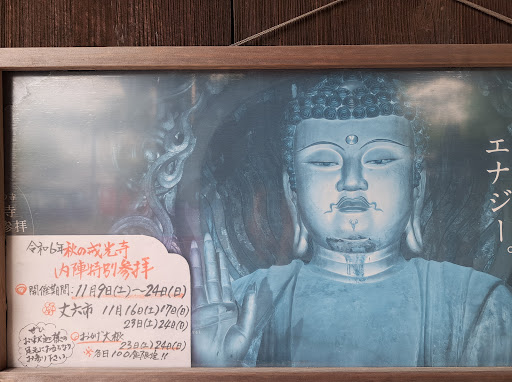 令和6年 秋の戒光寺
内陣特別参拝
開催期間:11月9日(土)〜24日(日)
丈六市 11月16日(土)17日(日)
23日(土)24日(日)
おかげ大根
23日(土)24日(日)
各日100食限定!!
ぜひ
お釈迦様の
お参り下さい。
エナジー。
寺
参拝